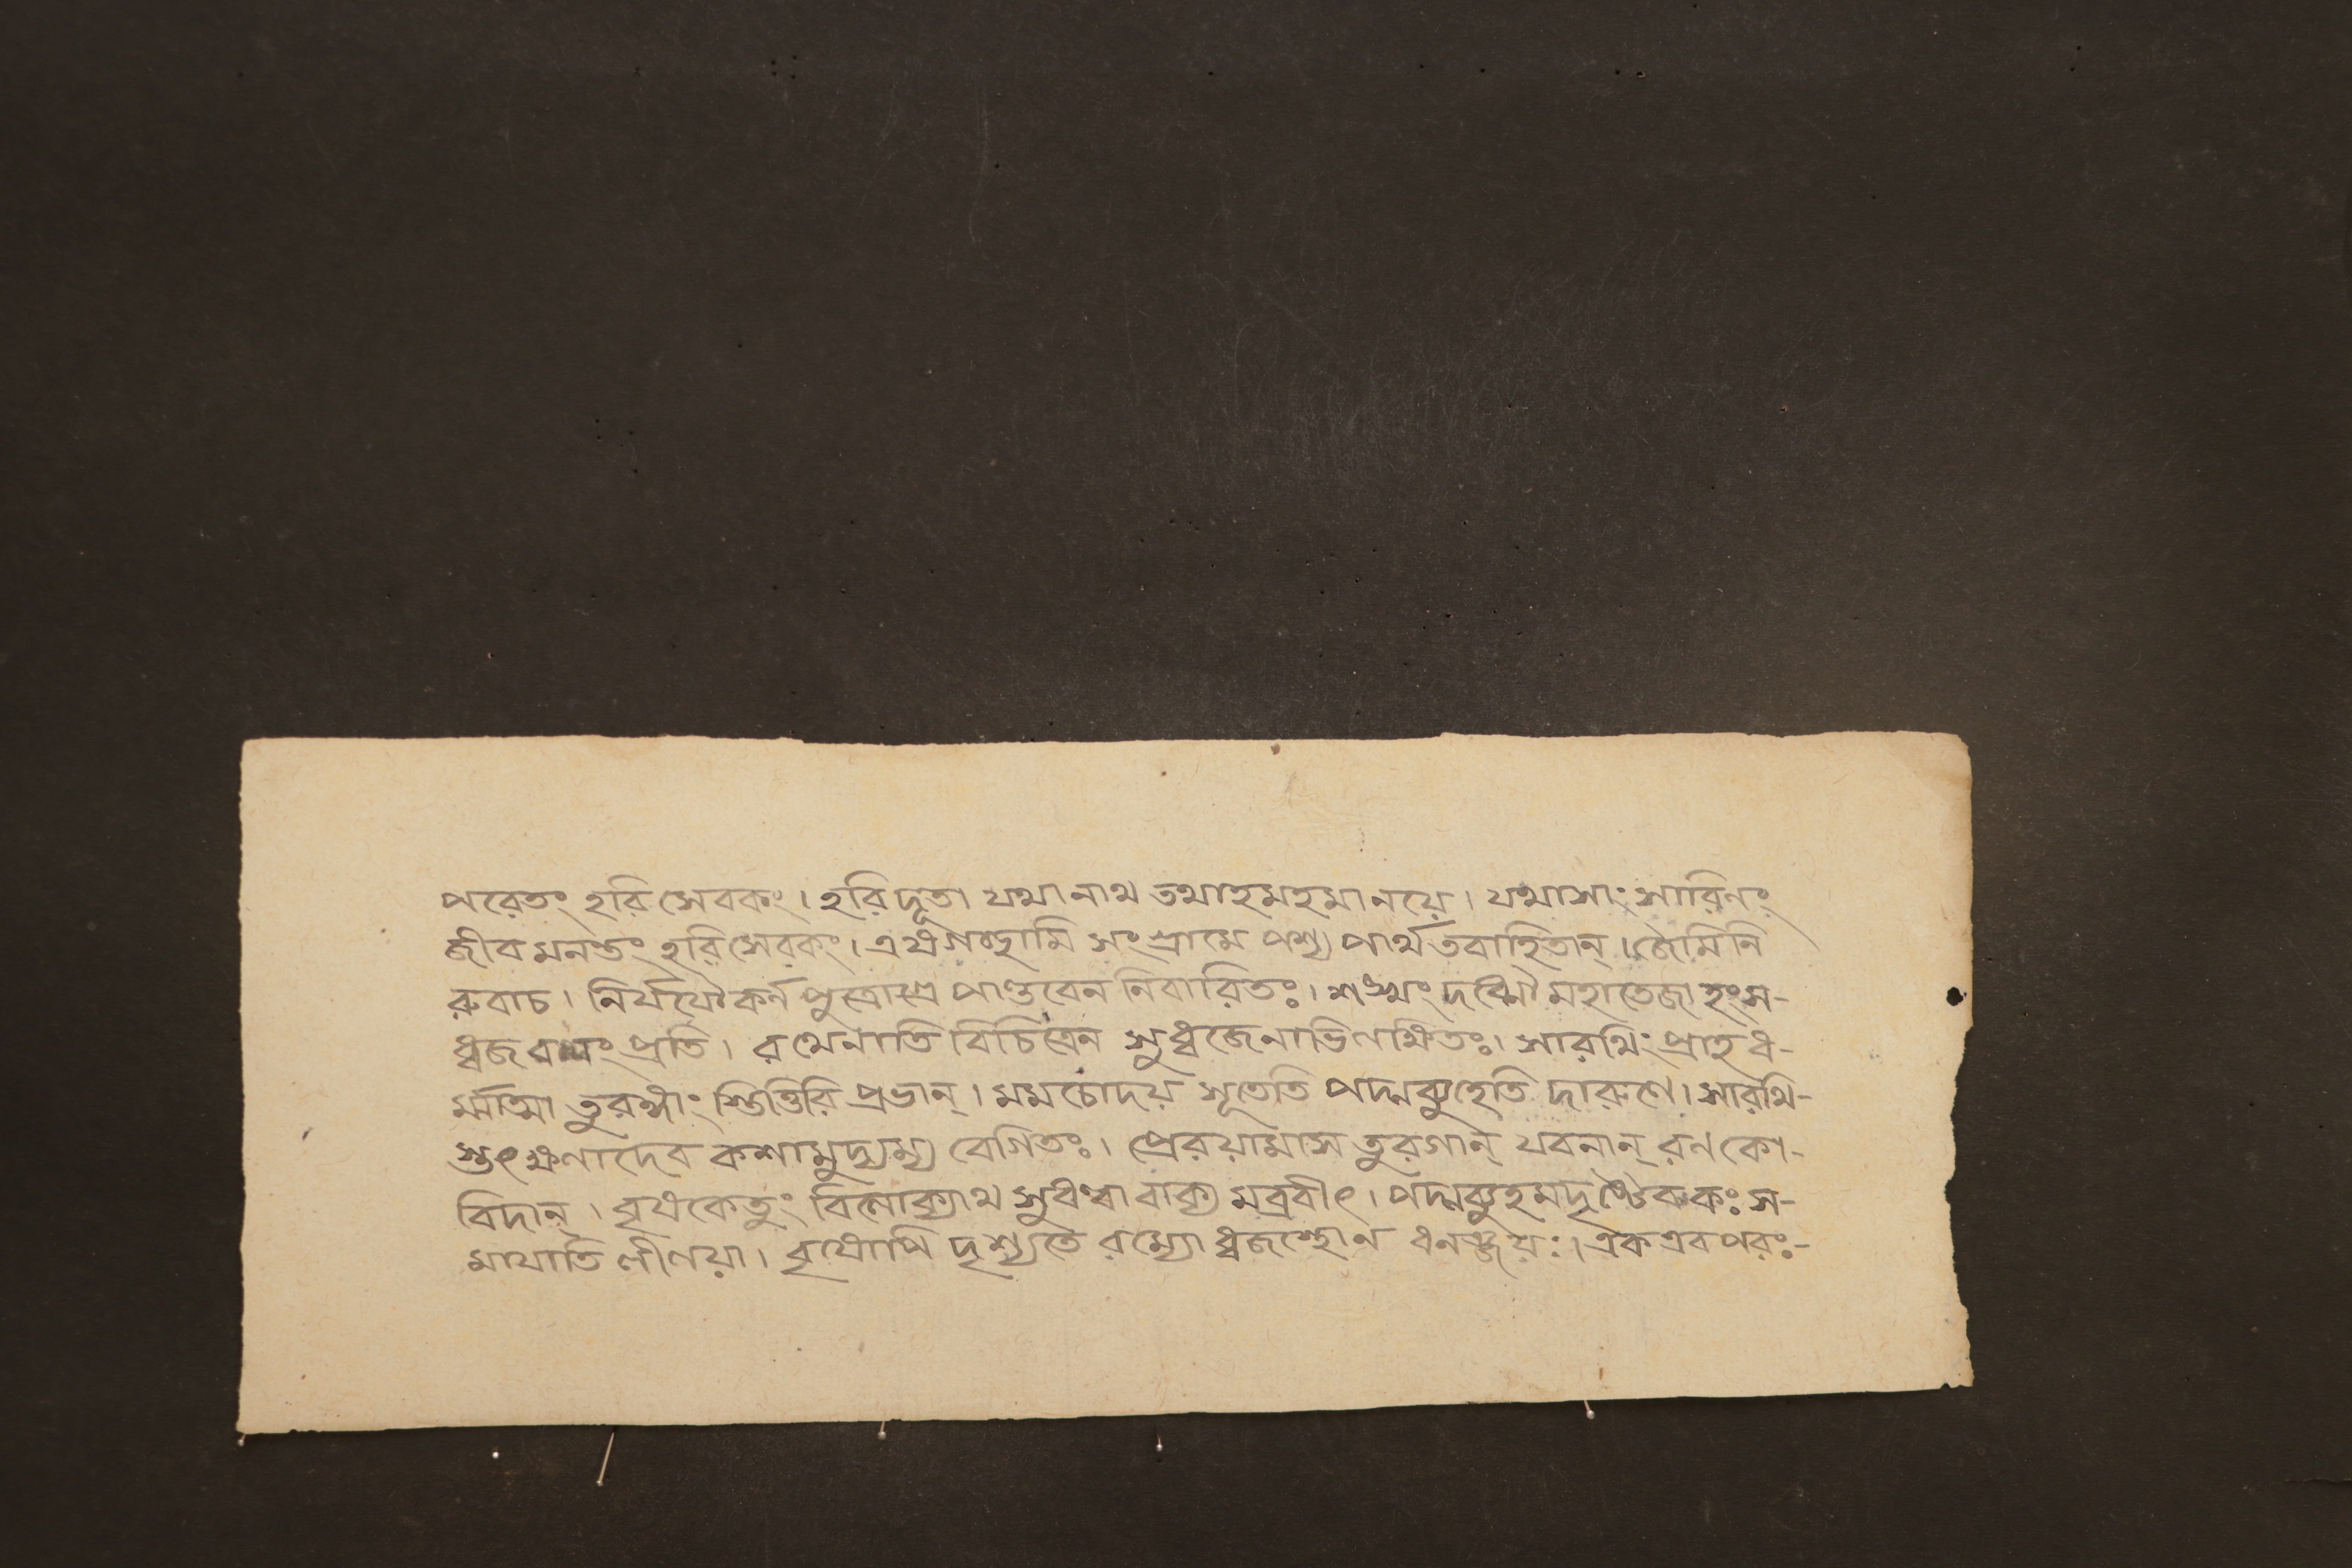 পরেতং হরি সেবকং। হরি দূতা যথা নাথ তথাহমহমানয়ে। যথাসাং সারিনং
জীব মনন্তং হরিসেবকং। এষগচ্ছামি সংগ্রামে পশ্য পার্থ তবাহিতান্। জৈমিনি
রুবাচ। নির্যযৌ কর্ন পুত্রোস্ত্র পাণ্ডবেন নিবারিতঃ। শঙ্খং দধ্মৌ মহাতেজা হংস-
ধ্বজ বলং প্রতি। রথেনাতি বিচিত্রেন সুধ্বজেনাভিলক্ষিতঃ। সারথিং প্রাহ ধ-
র্ম্মাত্মা তুরঙ্গাং স্তিত্তিরি প্রভান্। মম চোদয় সূতেতি পদ্মব্যুহেতি দারুণে। সারথি-
স্তৎক্ষণাদেব কশামুদ্যম্য বেগিতঃ। প্রেরয়ামাস তুরগান্ যবনান্ রণ কো-
বিদান্। বৃষকেতুং বিলোক্যাথ সুধন্বা বাক্য মব্রবীৎ। পদ্মব্যুহমদৃষ্টৈবকঃ স-
মাযাতি লীলয়া। বৃষোপি দৃশ্যতে রম্যো ধ্বজস্থোন ধনঞ্জয়ঃ। এক এব পরং-